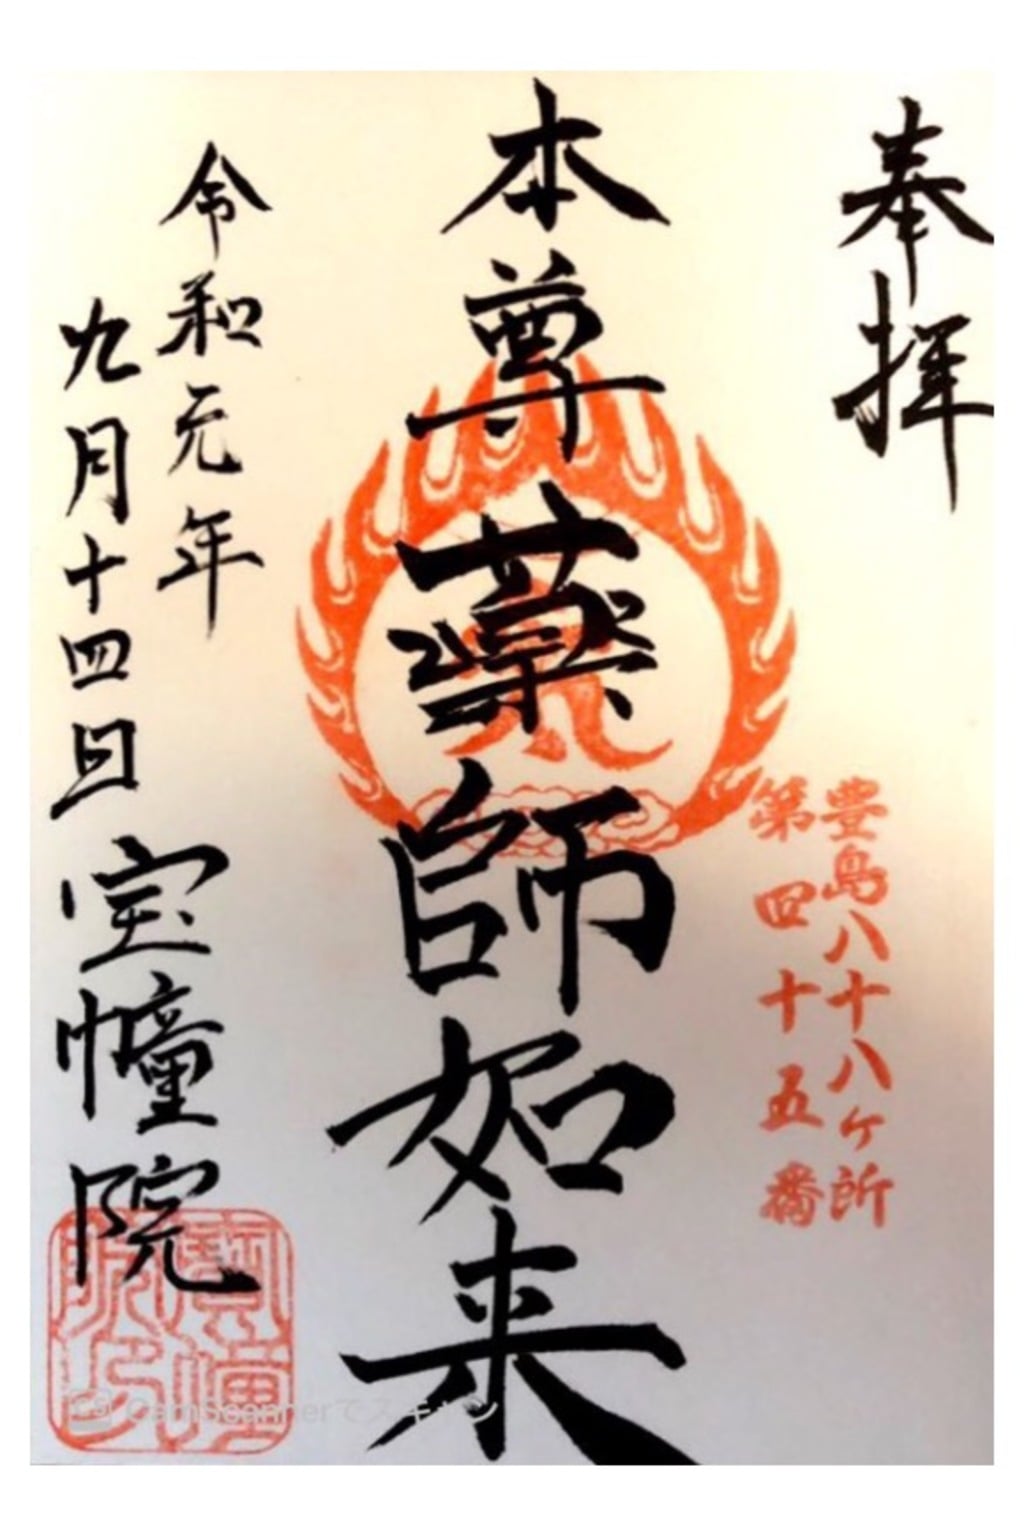 奉拝
豊島八十八ヶ所
第四十五番
本尊薬師如来
令和元年
九月十四日
宝幢院
寶幢
院印
CamScannerでスキャン